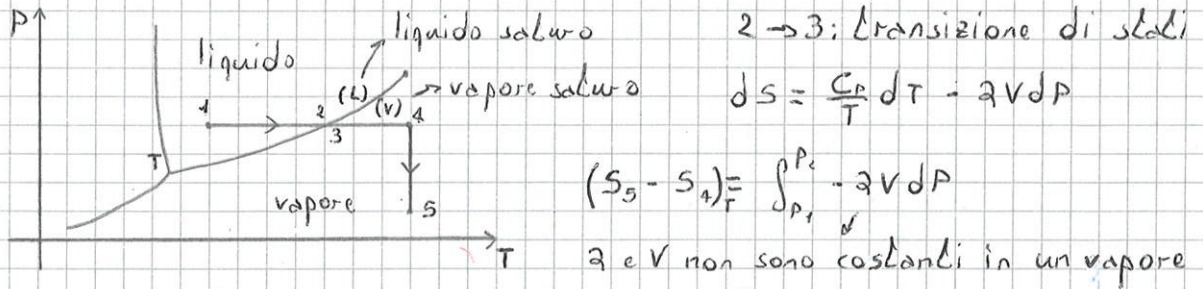 P
liquido saturo
liquido
(L)
vapore saturo
1
2
(V)
4
3
T
vapore
5
T
2 → 3: transizione di stati
dS = Cp/T dT - αVdP
(S5 - S4)T = ∫P1 P2 - αVdP
α e V non sono costanti in un vapore